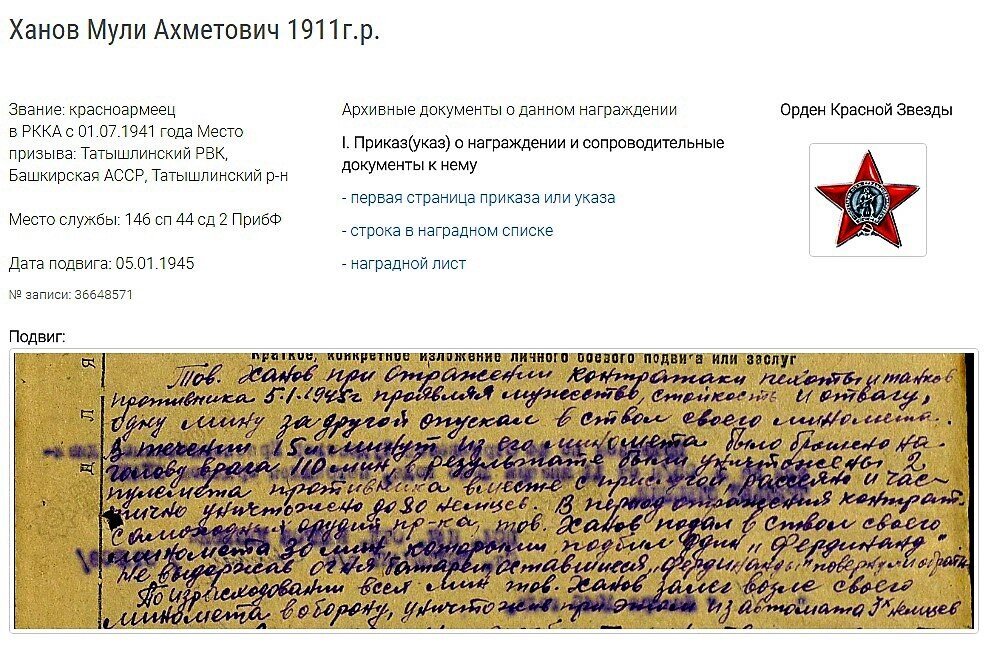 Ханов Мули Ахметович 1911г.р.
Звание: красноармеец
в РККА с 01.07.1941 года Место
призыва: Татышлинский РВК,
Башкирская АССР, Татышлинский р-н
Место службы: 146 сп 44 сд 2 ПрибФ
Дата подвига: 05.01.1945
№ записи: 36648571
Архивные документы о данном награждении
I. Приказ(указ) о награждении и сопроводительные
документы к нему
- первая страница приказа или указа
- строка в наградном списке
- наградной лист
Орден Красной Звезды
Подвиг:
Краткое, конкретное изложение личного боевого подвига или заслуг
Тов. Ханов при отражении контратаки пехоты и танков
противника 5.1.1945г проявляя мужество, стойкость и отвагу,
одну мину за другой опускал в ствол своего миномета.
В течении 5 минут из его миномета было брошено на
голову врага 110 мин в результате были уничтожены 2
пулемета противника вместе с прислугой, рассеяно и час-
тично уничтожено до 80 немцев. В период отражения контрат.
самоходных орудий пр-ка, тов. Ханов подал в ствол своего
миномета 30 мин, которыми подбил один "Фердинанд"
Не выдержав огня батареи оставшиеся "Фердинанды" повернули обратно
По израсходовании всех мин тов. Ханов залег возле своего
миномета в оборону, уничтожив при этом из автомата 3х немцев
Д Л Я